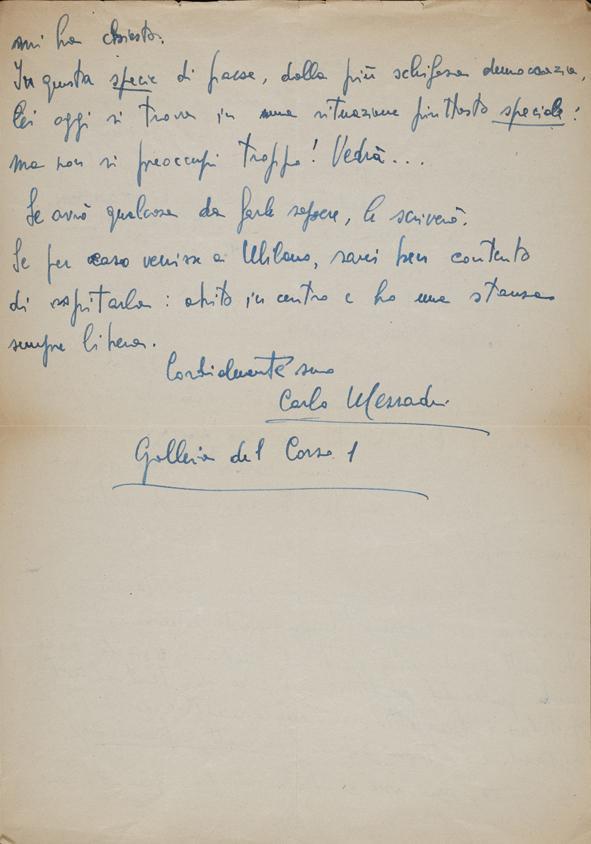 mi ha chiesto.
In questa specie di paese, dalla più schifosa democrazia,
lei oggi si trova in una situazione piuttosto speciale:
ma non si preoccupi troppo! Vedrà...
Se avrò qualcosa da farle sapere, le scriverò.
Se per caso venisse a Milano, sarei ben contento
di ospitarla: abito in centro e ho una stanza
sempre libera.
Cordialmente suo
Carlo
Galleria del Corso 1